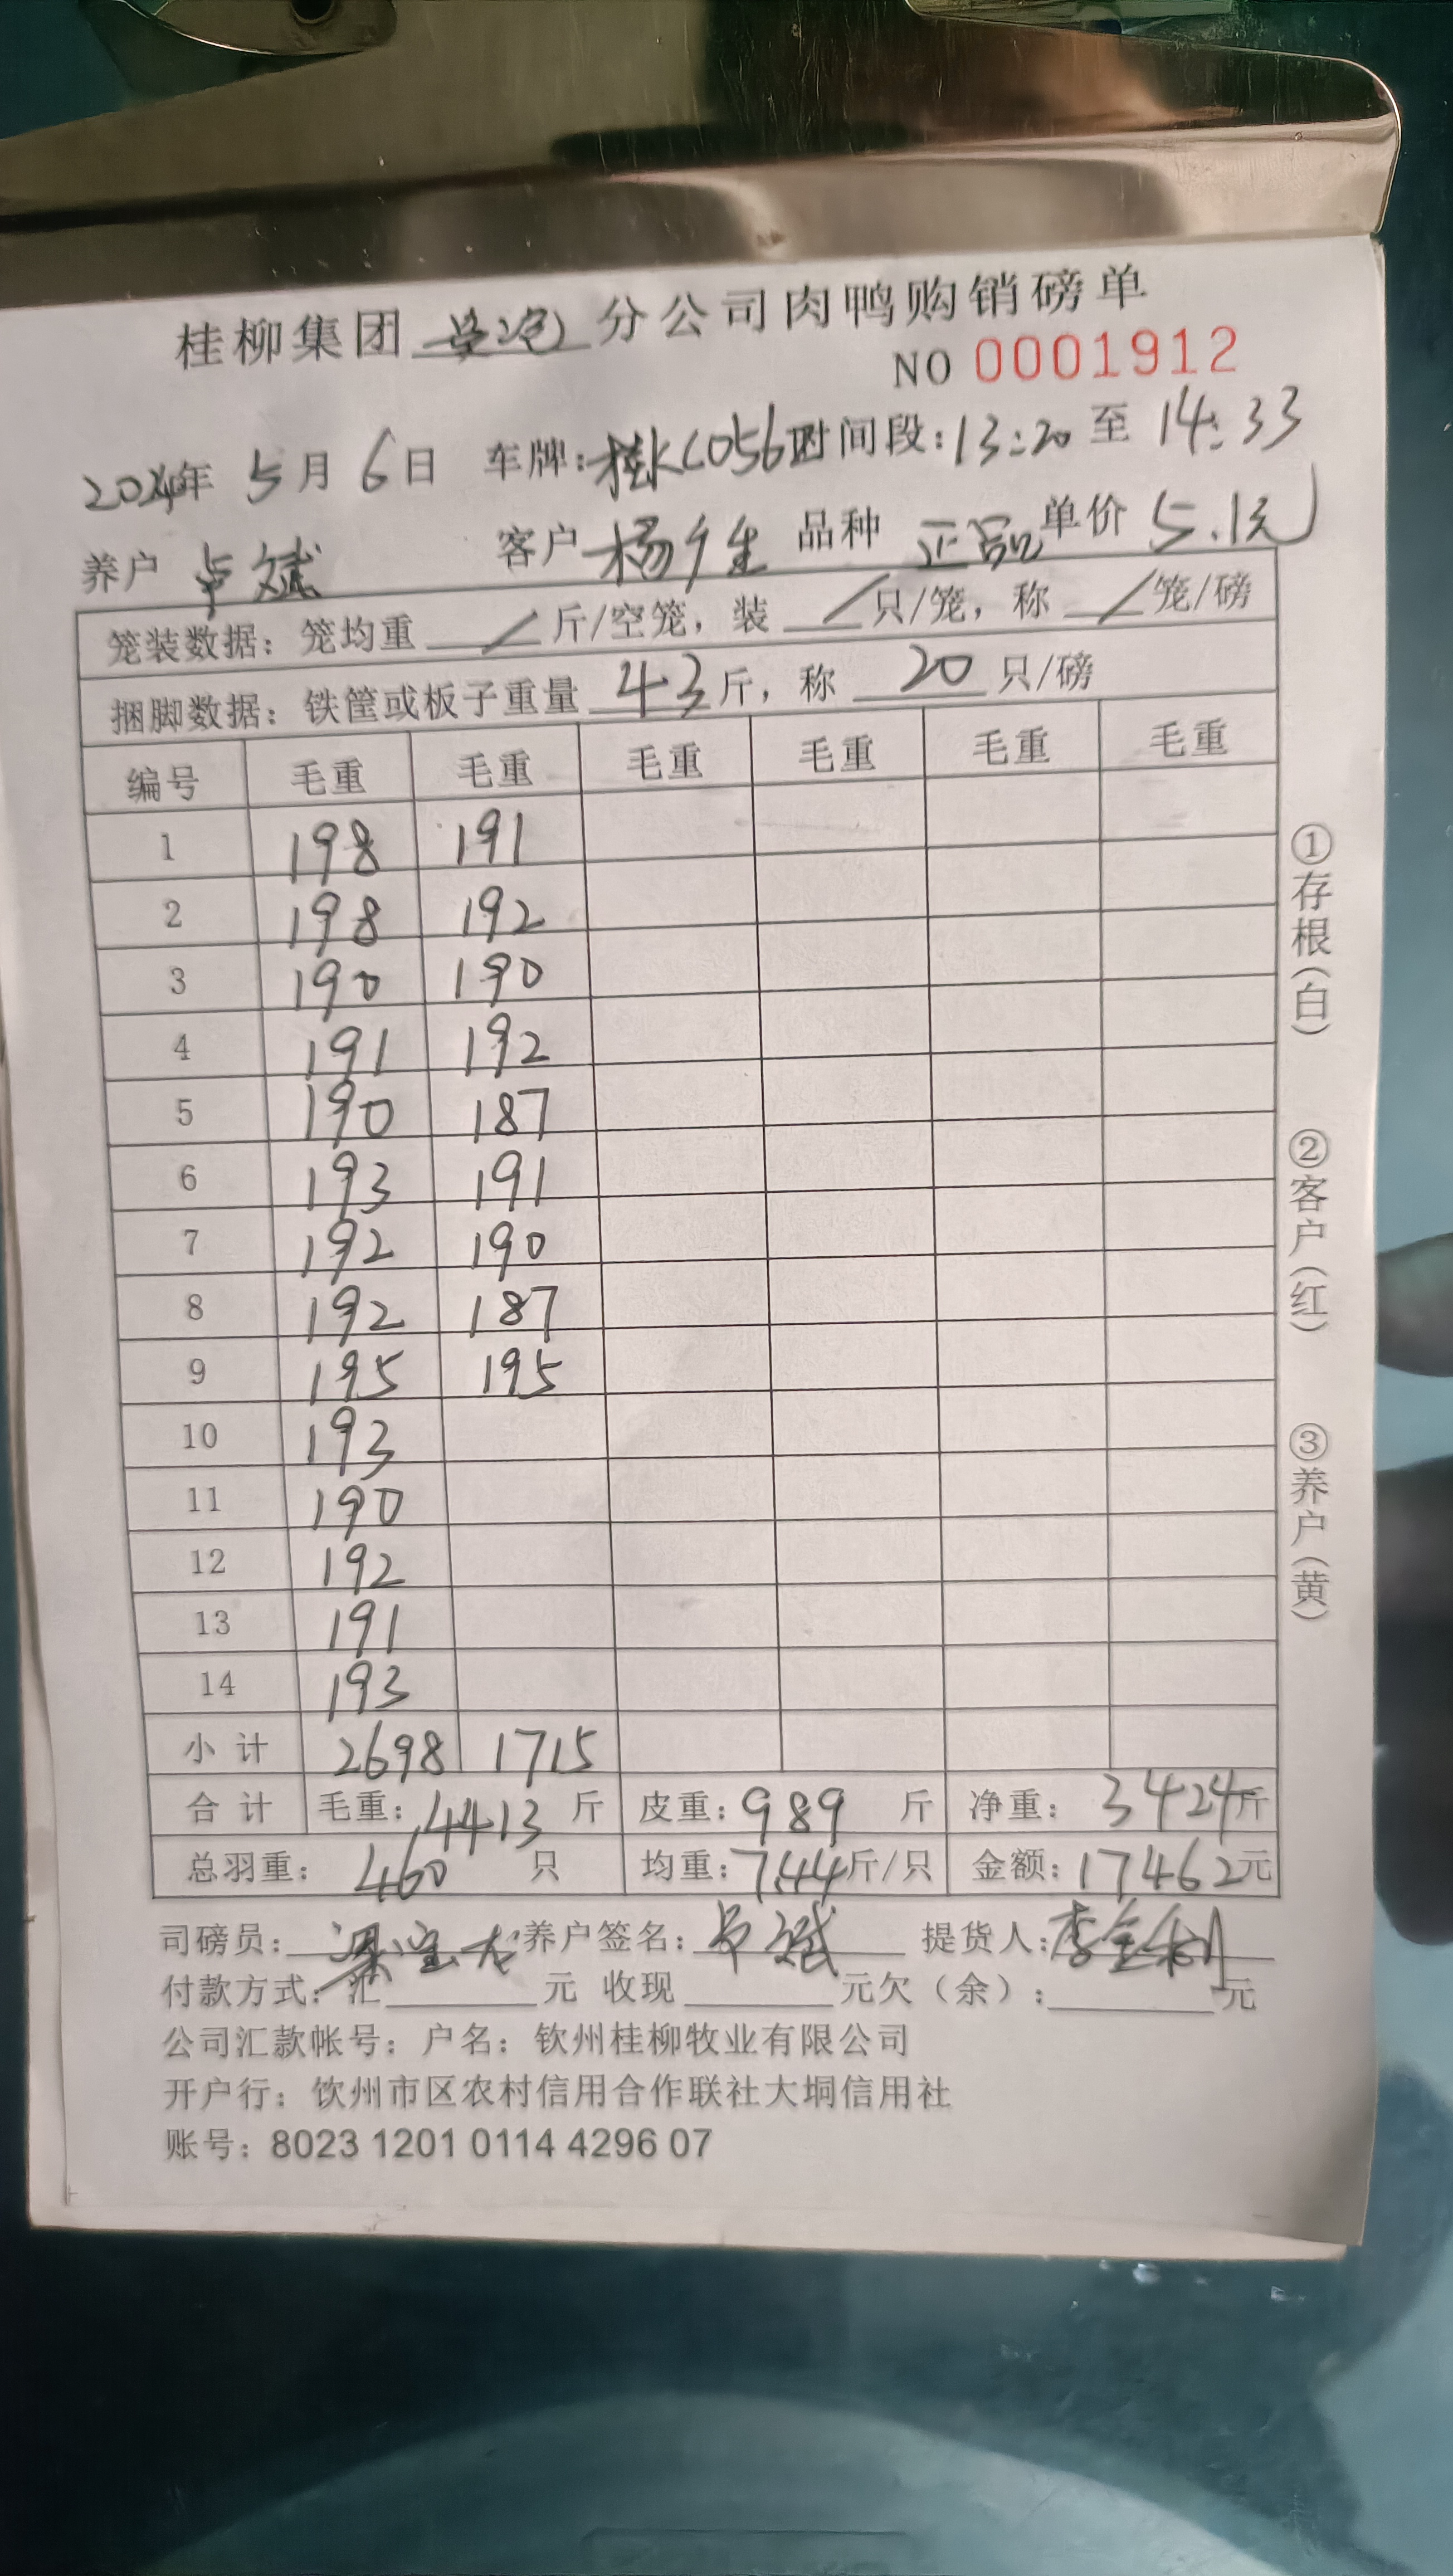 桂柳集团 分公司肉鸭购销磅单
NO 0001912
年 5月 6日 车牌: 时间段:13:20 至 14:33
养户 卢斌 客户 杨生 品种 正品 单价 5.1元
笼装数据: 笼均重 / 斤/空笼, 装 / 只/笼, 称 / 笼/磅
捆脚数据: 铁筐或板子重量 43 斤, 称 20 只/磅
编号 毛重 毛重 毛重 毛重 毛重 毛重
1 198 191
2 198 192
3 190 190
4 191 192
5 190 187
6 193 191
7 192 190
8 192 187
9 195 195
10 193
11 190
12 192
13 191
14 193
小 计 2698 1715
合 计 毛重: 4413 斤 皮重: 989 斤 净重: 3424斤
总羽重: 460 只 均重: 7.44斤/只 金额: 17462元
司磅员: 养户签名: 卢斌 提货人:
付款方式: 汇 元 收现 元欠(余): 元
公司汇款帐号: 户名: 钦州桂柳牧业有限公司
开户行: 饮州市区农村信用合作联社大垌信用社
账号: 8023 1201 0114 4296 07
①存根(白)
②客户(红)
③养户(黄)